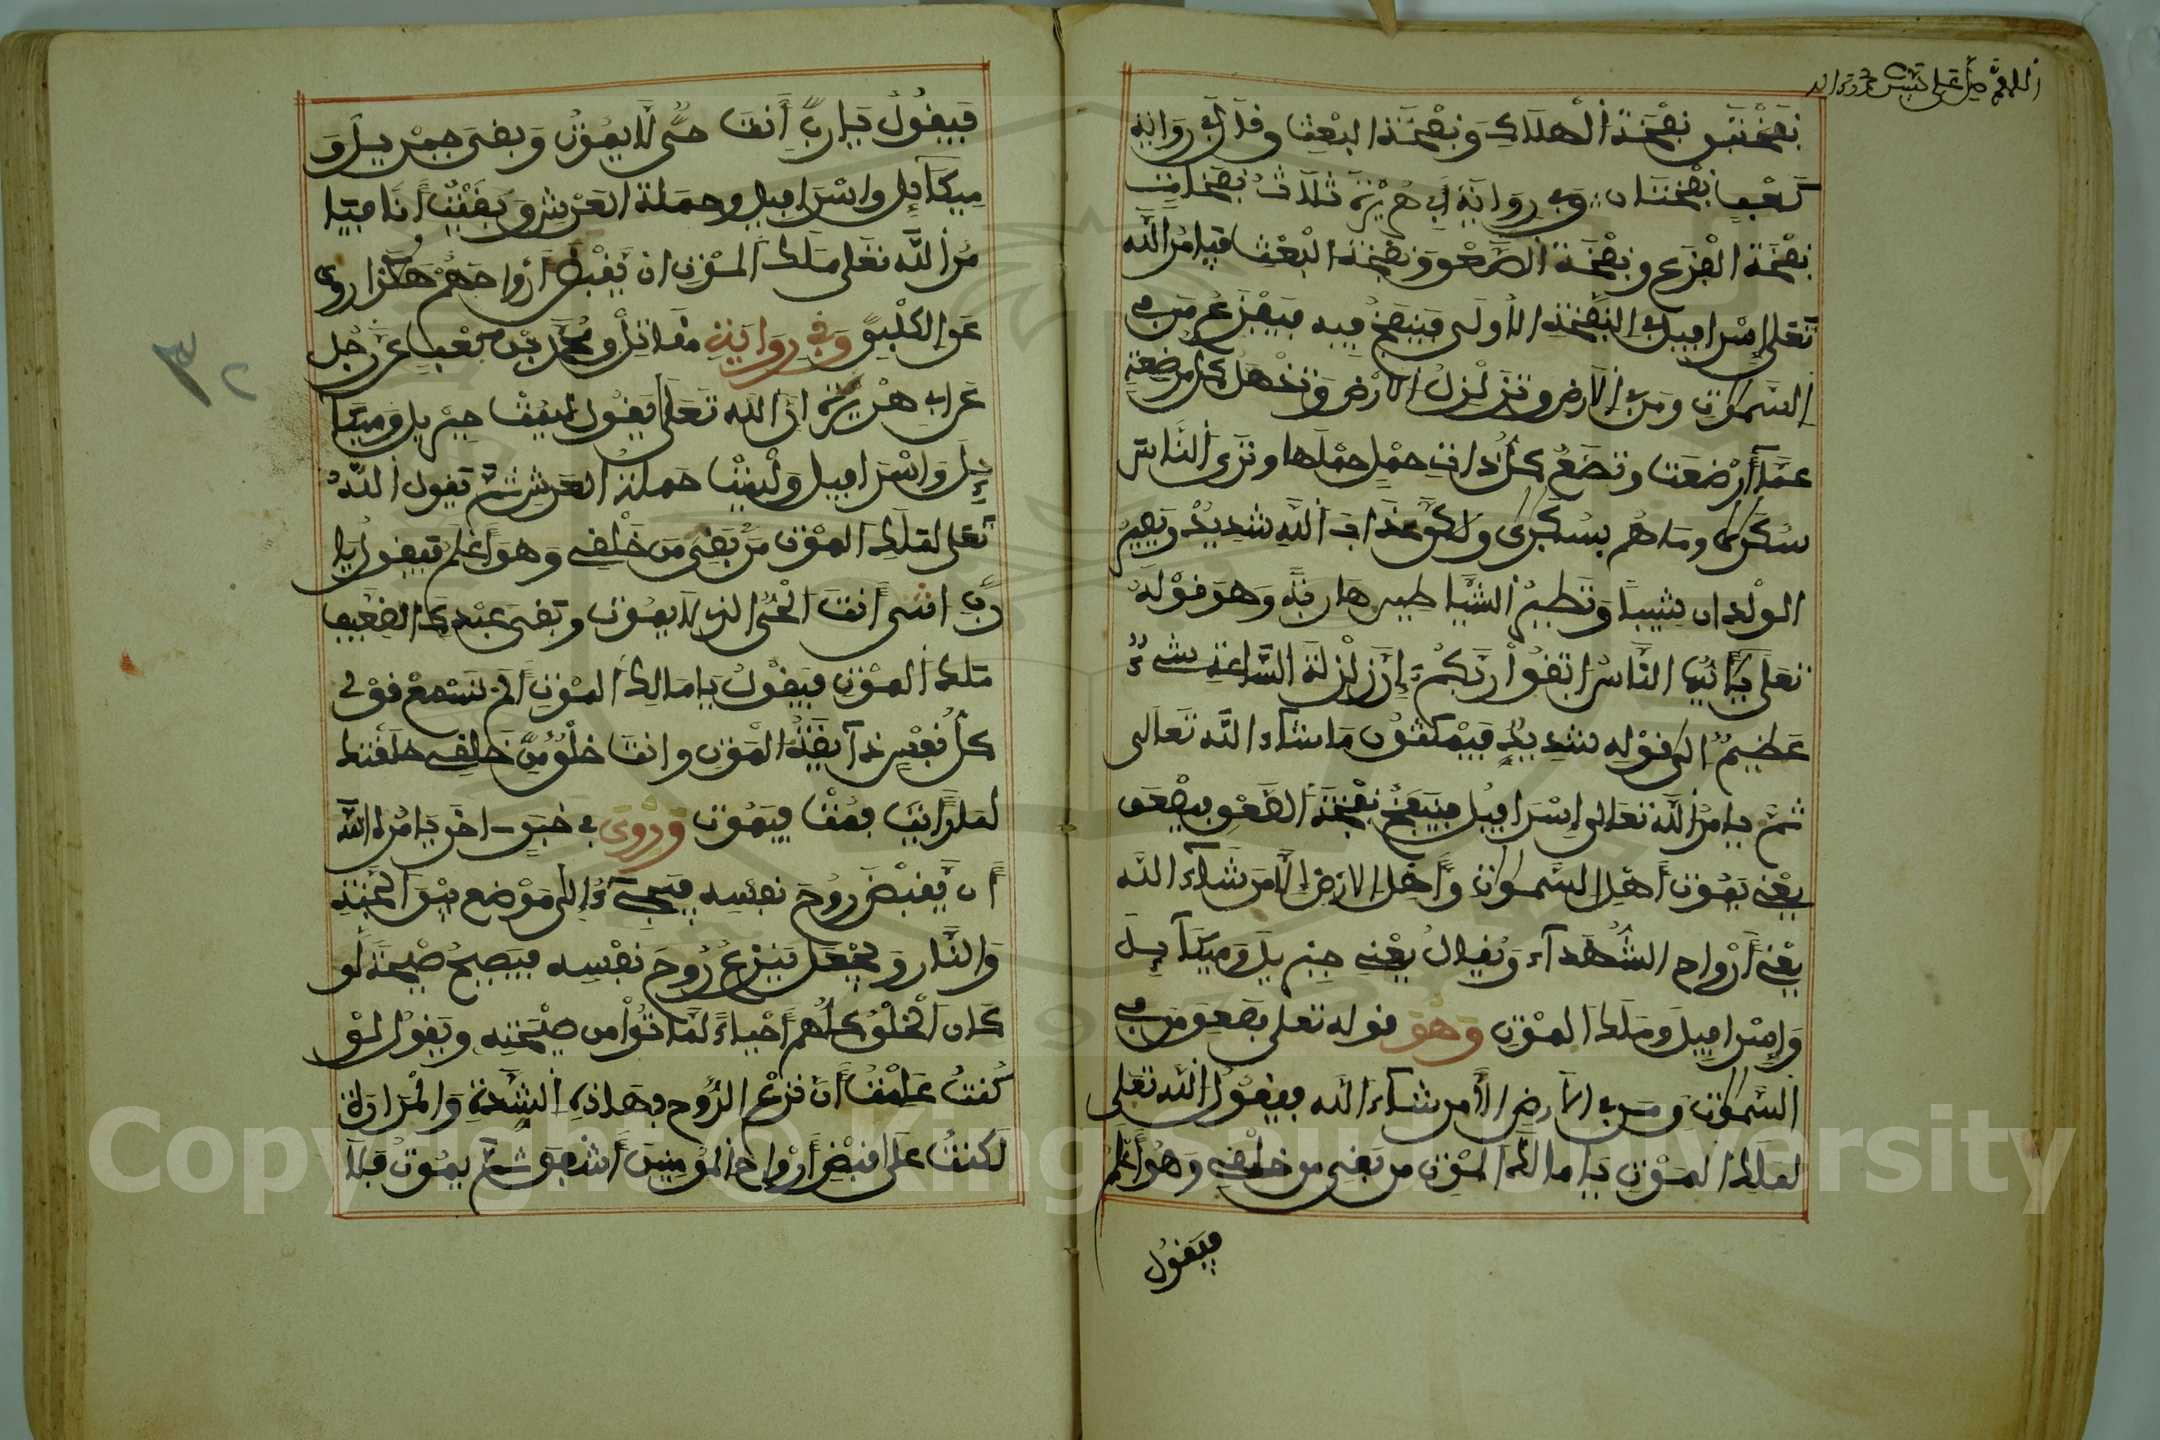 اللهم صل على نبيك محمد وءاله
نفختين نفخة الهلاك ونفخة البعث وقال في رواية
كعب نفختان وفي رواية ابي هريرة ثلاث نفخات
نفخة الفزع ونفخة الصعق ونفخة البعث فيامر الله
تعلى إسرافيل في النفخة الاولى فينفخ فيه فيفزع من في
السموات ومن في الارض وتزلزل الارض وتذهل كل مرضعة
عما أرضعت وتضع كل ذات حمل حملها وترى الناس
سكرى وما هم بسكرى ولكن عذاب الله شديد ويصير
الولدان شيبا وتطير الشياطين هاربة وهو قوله
تعلى يأيها الناس اتقوا ربكم إن زلزلة الساعة شيء
عظيم الى قوله شديد فيمكثون ما شاء الله تعالى
ثم يامر الله تعالى إسرافيل فينفخ نفخة الصعق فيصعق
يعني يموت أهل السموات وأهل الارض إلا من شاء الله
يعني أرواح الشهداء ويقال يعني جبريل وميكاءيل
وإسرافيل وملك الموت وهو قوله تعلى فصعق من في
السموات ومن في الارض إلا من شاء الله فيقول الله تعلى
لملك الموت يا مالك الموت من بقي من خلقي وهو أعلم
فيقول
فيقول يا رب أنت حي لا يموت وبقي جبريل و
ميكاءيل واسرافيل وحملة العرش وبقيت أنا فيا
مر الله تعلى ملك الموت ان يقبض أرواحهم هكذا روي
عن الكلبي وفي رواية مقاتل ومحمد بن كعب عن رجل
عن ابي هريرة ان الله تعلى يقول ليمت جبريل وميكا
ءيل واسرافيل وليمت حملة العرش ثم يقول الله
تعلى لملك الموت من بقي من خلقي وهو أعلم فيقول يا
رب انت الحي الذي لا يموت وبقي عبدك الضعيف
ملك الموت فيقول يا مالك الموت ألم تسمع قولي
كل نفس ذائقة الموت وانت خلق من خلقي خلقتك
لما رأيت فمت فيموت وروي في خبر اخر يامره الله
أن يقبض روح نفسه فيجيء إلى موضع بين الجنة
والنار ويجعل ينزع روح نفسه فيصيح صيحة لو
كان الخلق كلهم أحياء لماتوا من صيحته ويقول لو
كنت علمت أن نزع الروح بهاذه الشدة والمرارة
لكنت على قبض أرواح المومنين أشفق ثم يموت فلا